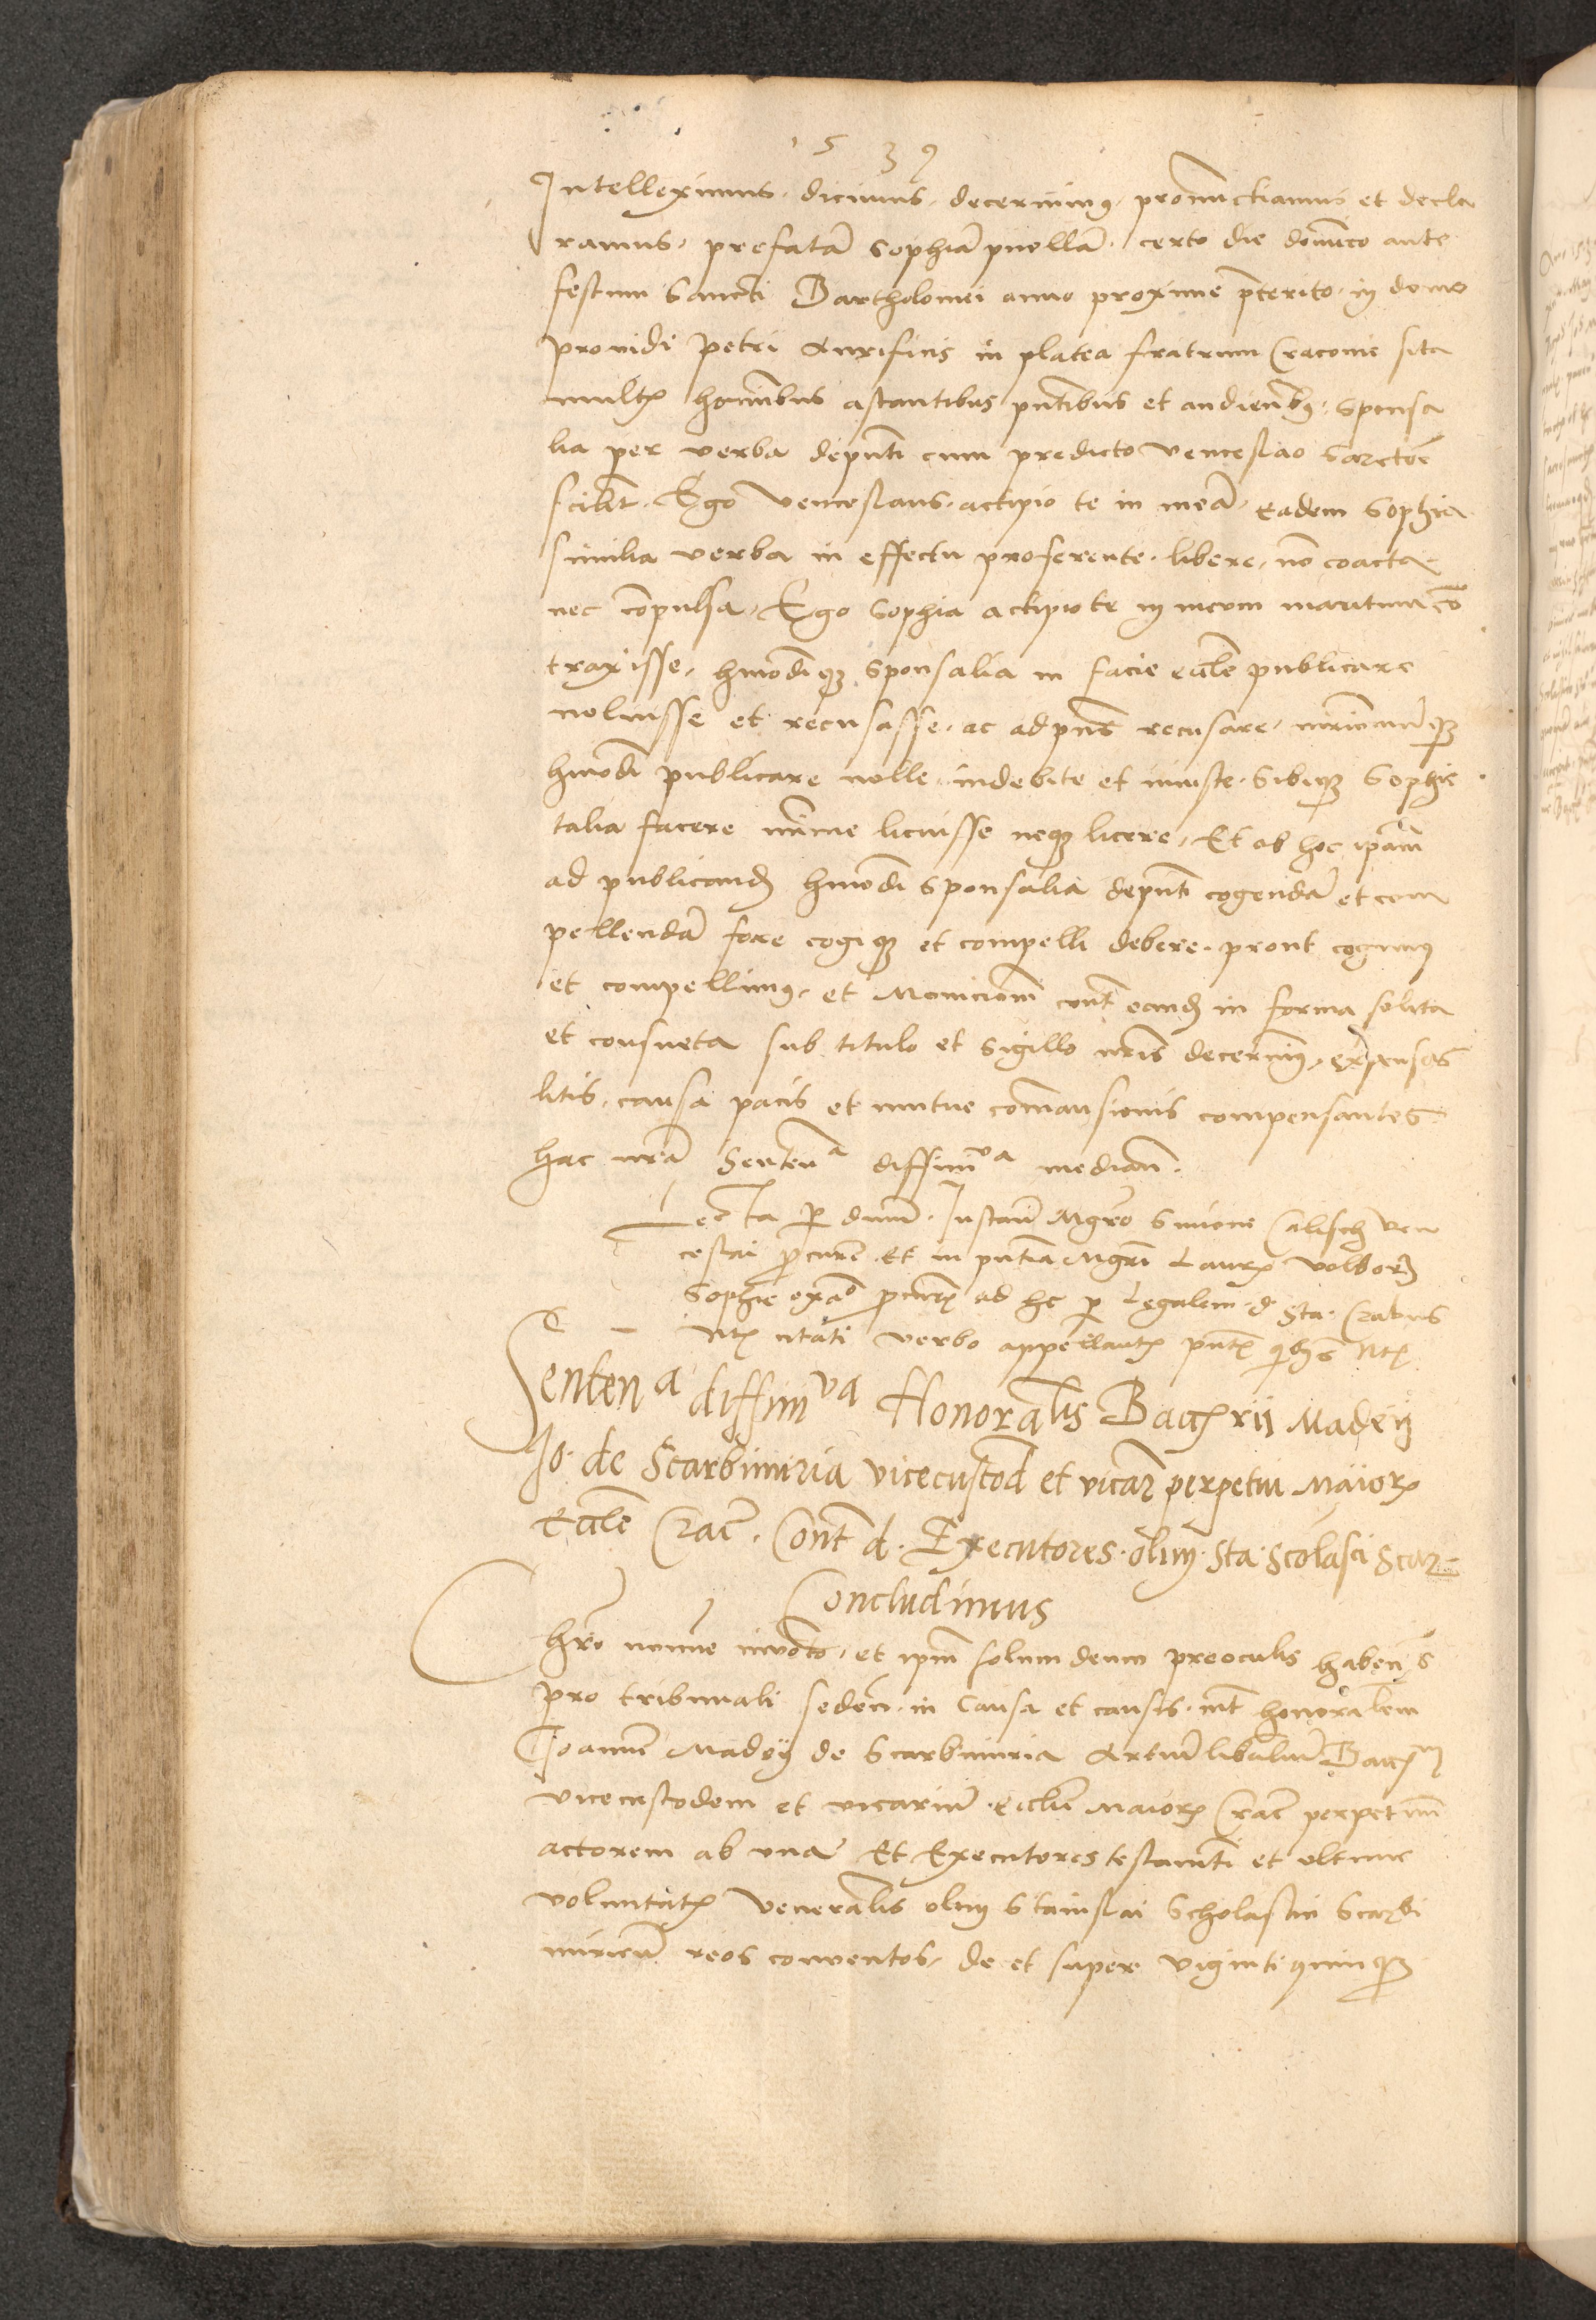 1539
Intelleximus. dicimus. decernimus. pronunctiamus et decla
ramus. prefatã sophiã puellã. certo die dominico ante
festum Sancti Bartholomei anno proxime pterito. in domo
prouidi petri Aurificis in platea fratrum Cracouie sita
multis hominibus astantibus pntibus et audientibus. sponsa
lia per verba depnti cum predicto venceslao Sarctore
scilicet. Ego venceslaus. actipio te in meã. eadem Sophia
similia verba in effectu proferente. libere. nõ coacta
nec cõpulsa. Ego Sophia actipio te in meum maritum cõ
traxisse. hmõdique sponsalia in facie ecclie publicare
noluisse et recusasse. ac ad pns recusare. mrimoniumque
hmõdi publicare nolle. indebite et iniuste. Sibique Sophie
talia facere minime licuisse neque licere. Et ob hoc ipam
ad publicand hmõdi sponsalia depnti cogendã et com
pellendã fore cogique et compelli debere. prout cogimus
et compellimus. et Monicionem cont eand in forma solita
et consueta sub titulo et sigillo nris decernimus. expensas
litis. causa pacis et mutue cõmansionis compensantes
hac nrã Sentena diffinva median.
Lecta per dnum. Instan Mgro Simone Calisch ven
ceslai procure Et in pntia Mgri Laurx volbor
Sophie procurx ad hc per Legalem d. Sta. Crabus
citati verbo appellantx pntx
Sentena diffinva Honorabilis Baccrii Madeij
Jo. de Scarbimiria vicecustod et vicar perpetui Maiorx
Ecclie Crac. Cont d. Executores. olim. Sta. Scolasci Scar
Concludimus
Christo nomine inuocto. et ipm solum deum preoculis haben
pro tribunali seden. in Causa et causis. int honorabilem
Joannem Madeij de Scarbimiria Artium libalium Baccm
vicecustodem et vicarium Ecclie Maiorx Crac perpetuum
actorem ab vna Et Executores testamti et vltime
voluntatx venerabilis olim Stanislai Scholastici Scarbi
miricen reos conuentos. de et super viginti quinque